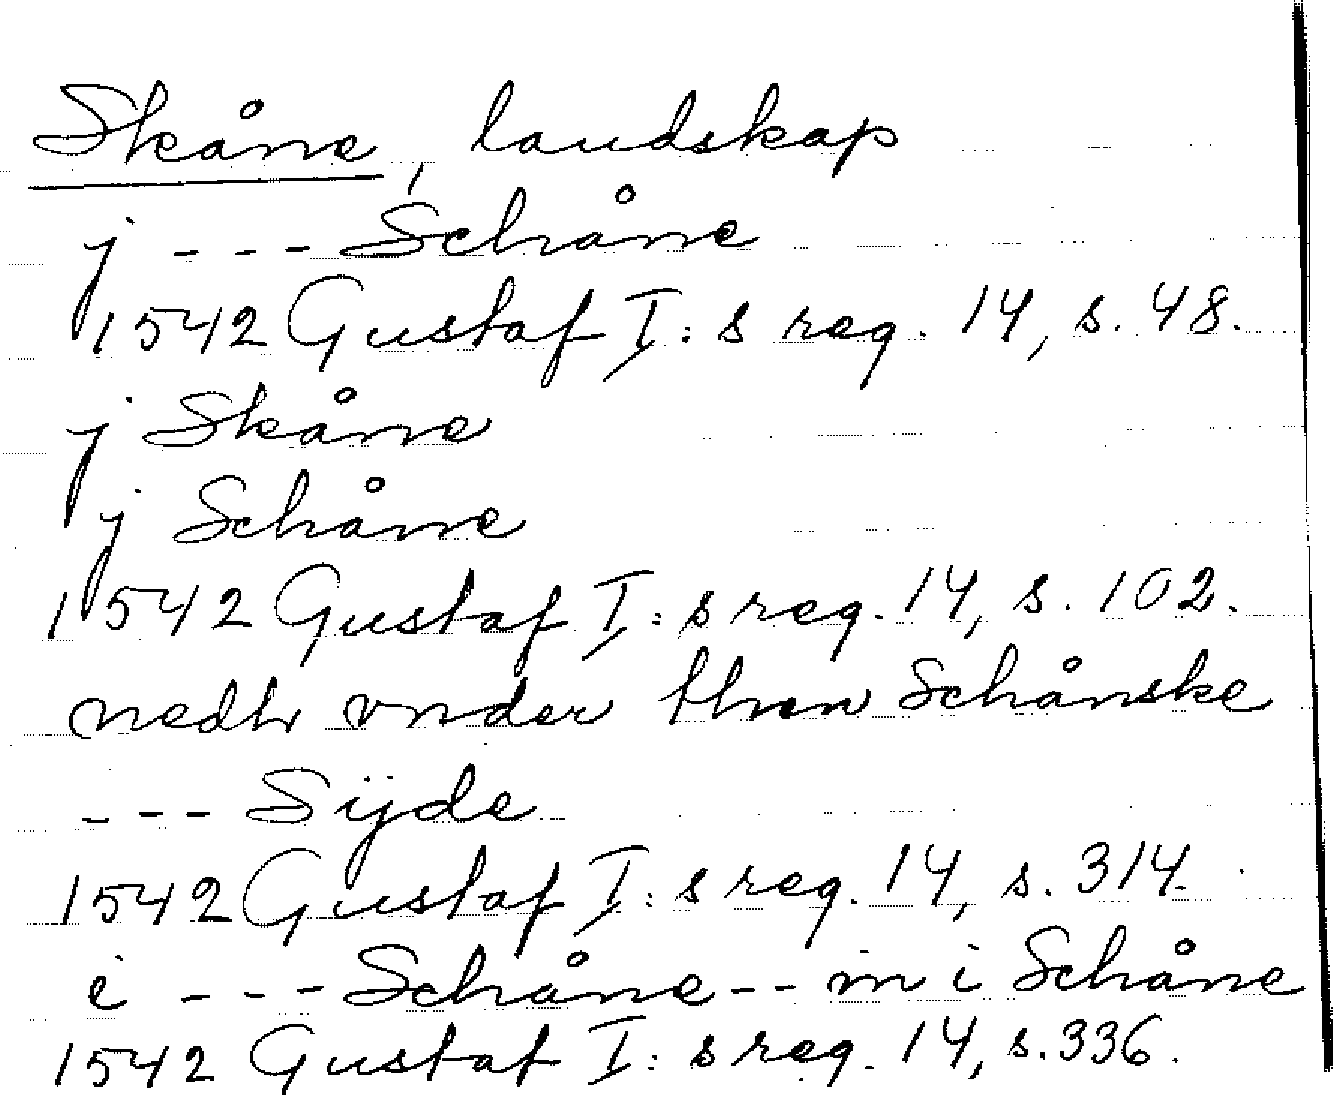 Skåne, landskap
j --- Schåne
1542 Gustaf I:s reg. 14, s. 48.
j Skåne
j Schåne
1542 Gustaf I:s reg. 14, s. 102.
nedh vnder then Schånske
--- Sijde
1542 Gustaf I:s reg. 14, s. 314.
i --- Schåne -- in i Schåne
1542 Gustaf I:s reg. 14, s. 336.